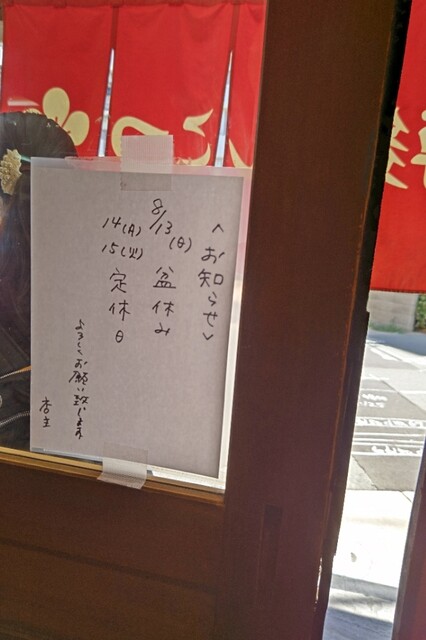 <お知らせ>
8/13(日) 盆休み
14(月)
15(火) 定休日
よろしくお願い致します
店主